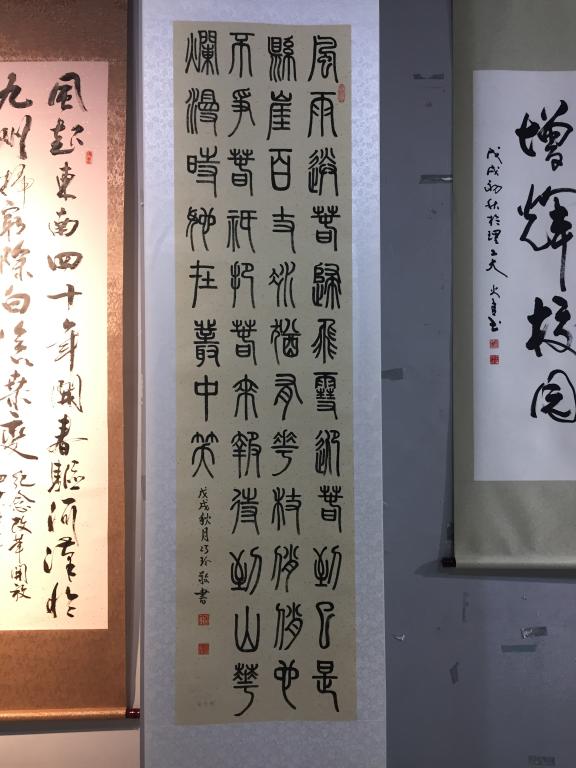 增輝校园
戊戌初秋於理工大
風雨送春歸飛雪迎春到已是
縣崖百丈冰猶有華枝俏俏也
不爭春祇把春來報待到山華
爛漫時她在叢中笑
戊戌秋月 敬書
風起東南四十年開春驅河漢於
九州掃窮除白
紀念改革開放